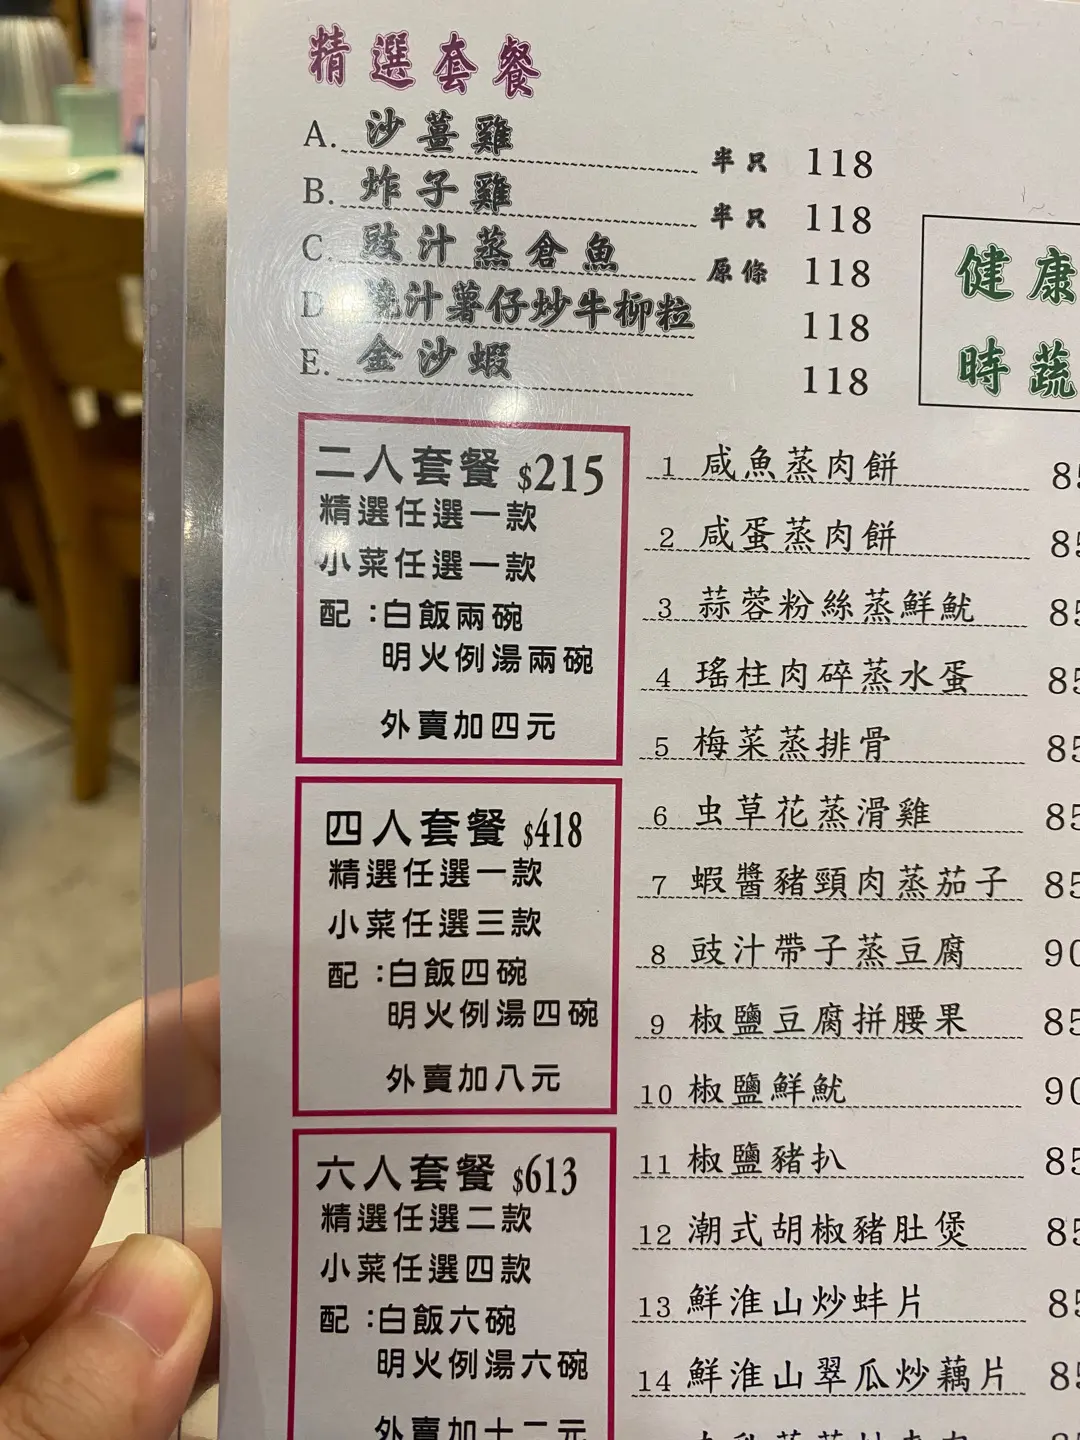 精選套餐
A. 沙薑雞 半只 118
B. 炸子雞 半只 118
C. 豉汁蒸倉魚 原條 118
D 燒汁薯仔炒牛柳粒 118
E. 金沙蝦 118
健康
時蔬
二人套餐 $215
精選任選一款
小菜任選一款
配:白飯兩碗
明火例湯兩碗
外賣加四元
四人套餐 $418
精選任選一款
小菜任選三款
配:白飯四碗
明火例湯四碗
外賣加八元
六人套餐 $613
精選任選二款
小菜任選四款
配:白飯六碗
明火例湯六碗
外賣加十二元
1 咸魚蒸肉餅
2 咸蛋蒸肉餅
3 蒜蓉粉絲蒸鮮魷
4 瑤柱肉碎蒸水蛋
5 梅菜蒸排骨
6 虫草花蒸滑雞
7 蝦醬豬頸肉蒸茄子 85
8 豉汁帶子蒸豆腐 90
9 椒鹽豆腐拼腰果 85
10 椒鹽鮮魷 90
11 椒鹽豬扒 85
12 潮式胡椒豬肚煲 85
13 鮮淮山炒蚌片
14 鮮淮山翠瓜炒藕片